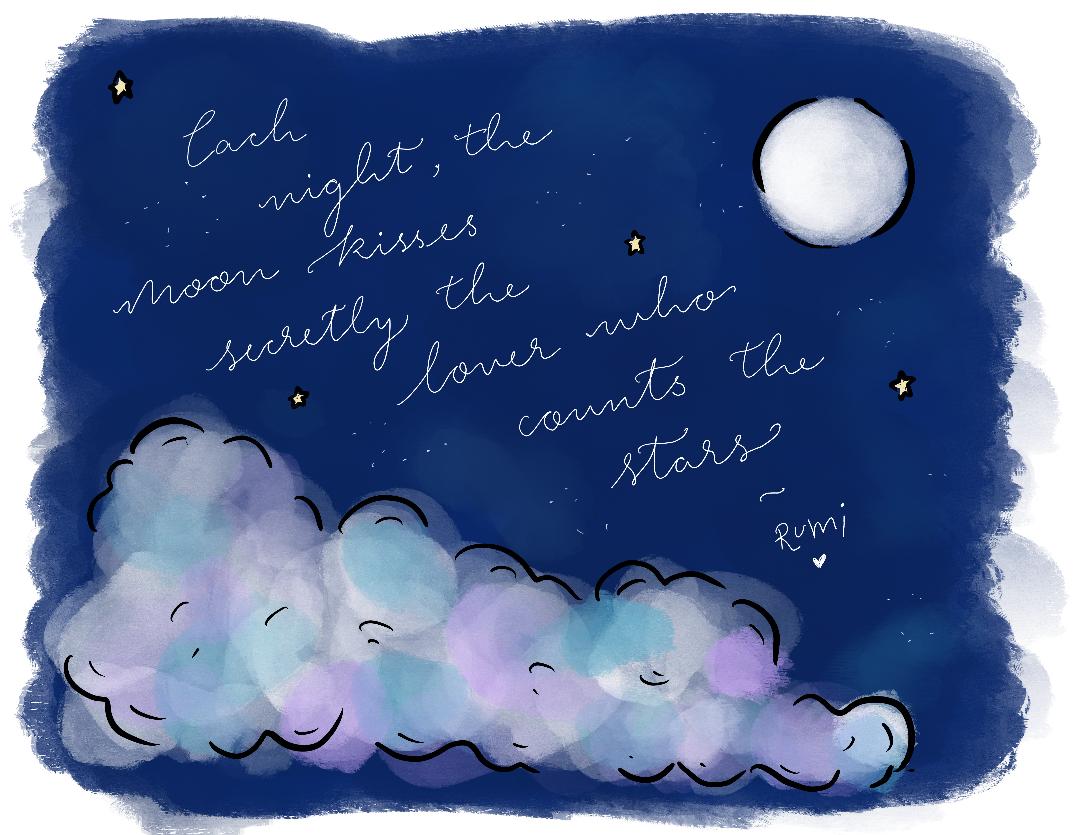 Each
night, the
moon kisses
secretly the
lover who
counts the
stars
~
Rumi